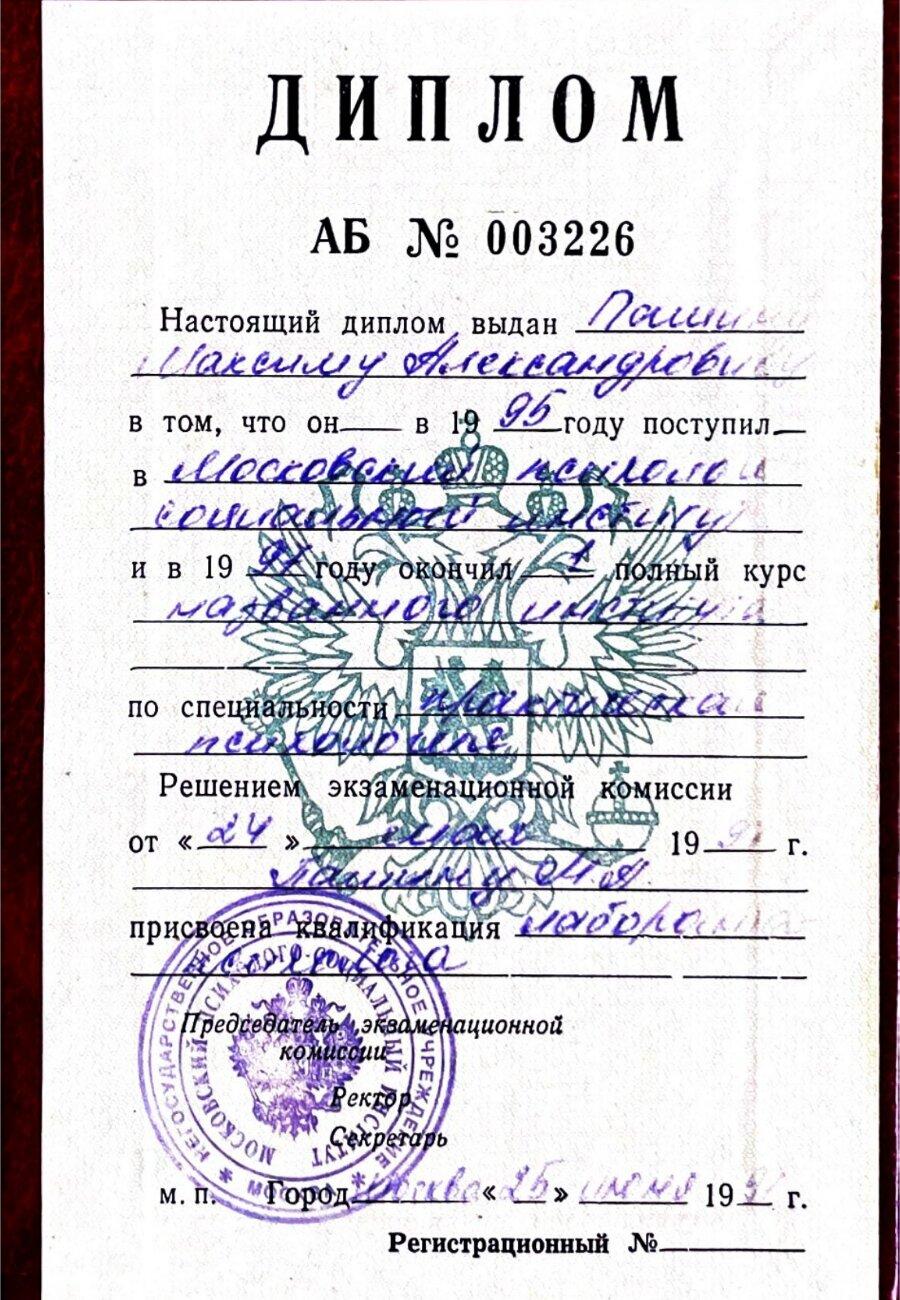 ДИПЛОМ
АБ № 003226
Настоящий диплом выдан
Максиму Александровичу
в том, что он в 1995 году поступил
в Московский психолого
социальный институт
и в 19 году окончил полный курс
названного института
по специальности практическая
психология
Решением экзаменационной комиссии
от «24» 19 г.
М.А.
присвоена квалификация
Председатель экзаменационной
комиссии
Ректор
Секретарь
м. п. Город Москва «25» июня 19 г.
Регистрационный №
НЕГОСУДАРСТВЕННОЕ ОБРАЗОВАТЕЛЬНОЕ УЧРЕЖДЕНИЕ
МОСКОВСКИЙ ПСИХОЛОГО-СОЦИАЛЬНЫЙ ИНСТИТУТ